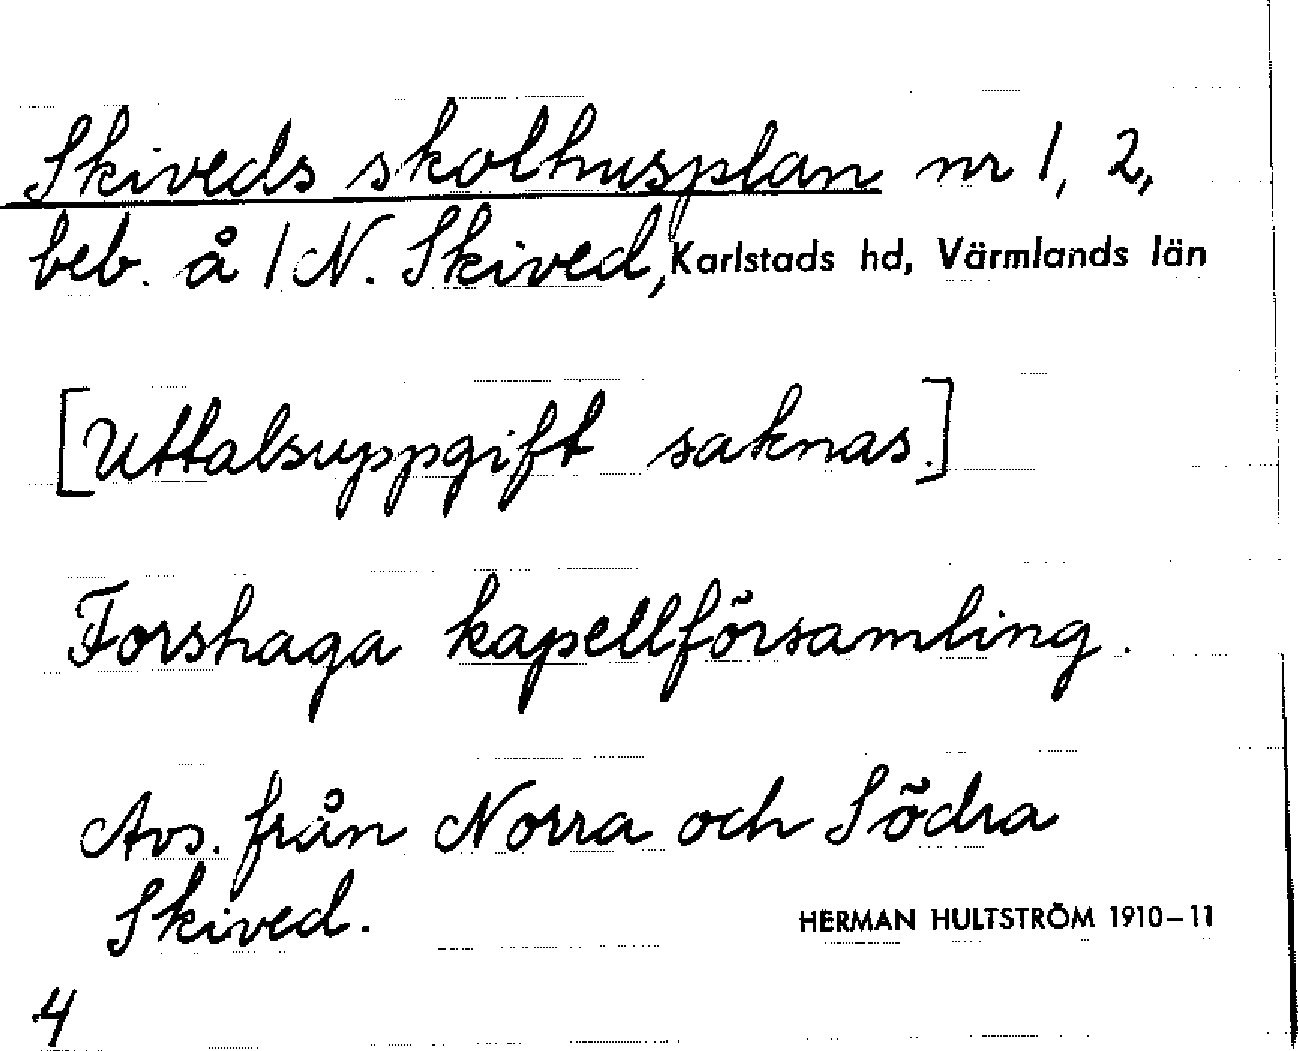 Skiveds skolhusplan nr 1, 2,
beb. å 1 N. Skived, Karlstads hd, Värmlands län
[Uttalsuppgift saknas.]
Forshaga kapellförsamling.
Avs. från Norra och Södra
Skived.
HERMAN HULTSTRÖM 1910–11
4